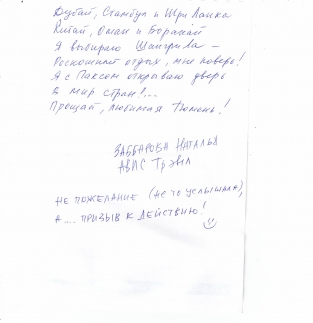 Дубай, Стамбул и Шри Ланка
Китай, Оман и Боракай
Я выбираю Шангрила –
Роскошный отдых, мне поверь!
Я с Паксом открываю дверь
в мир стран!...
Прощай, любимая Тюмень!
Заббарова Наталья
Авис Трэвл
Не пожелание (не то услышала),
а .... призыв к действию!